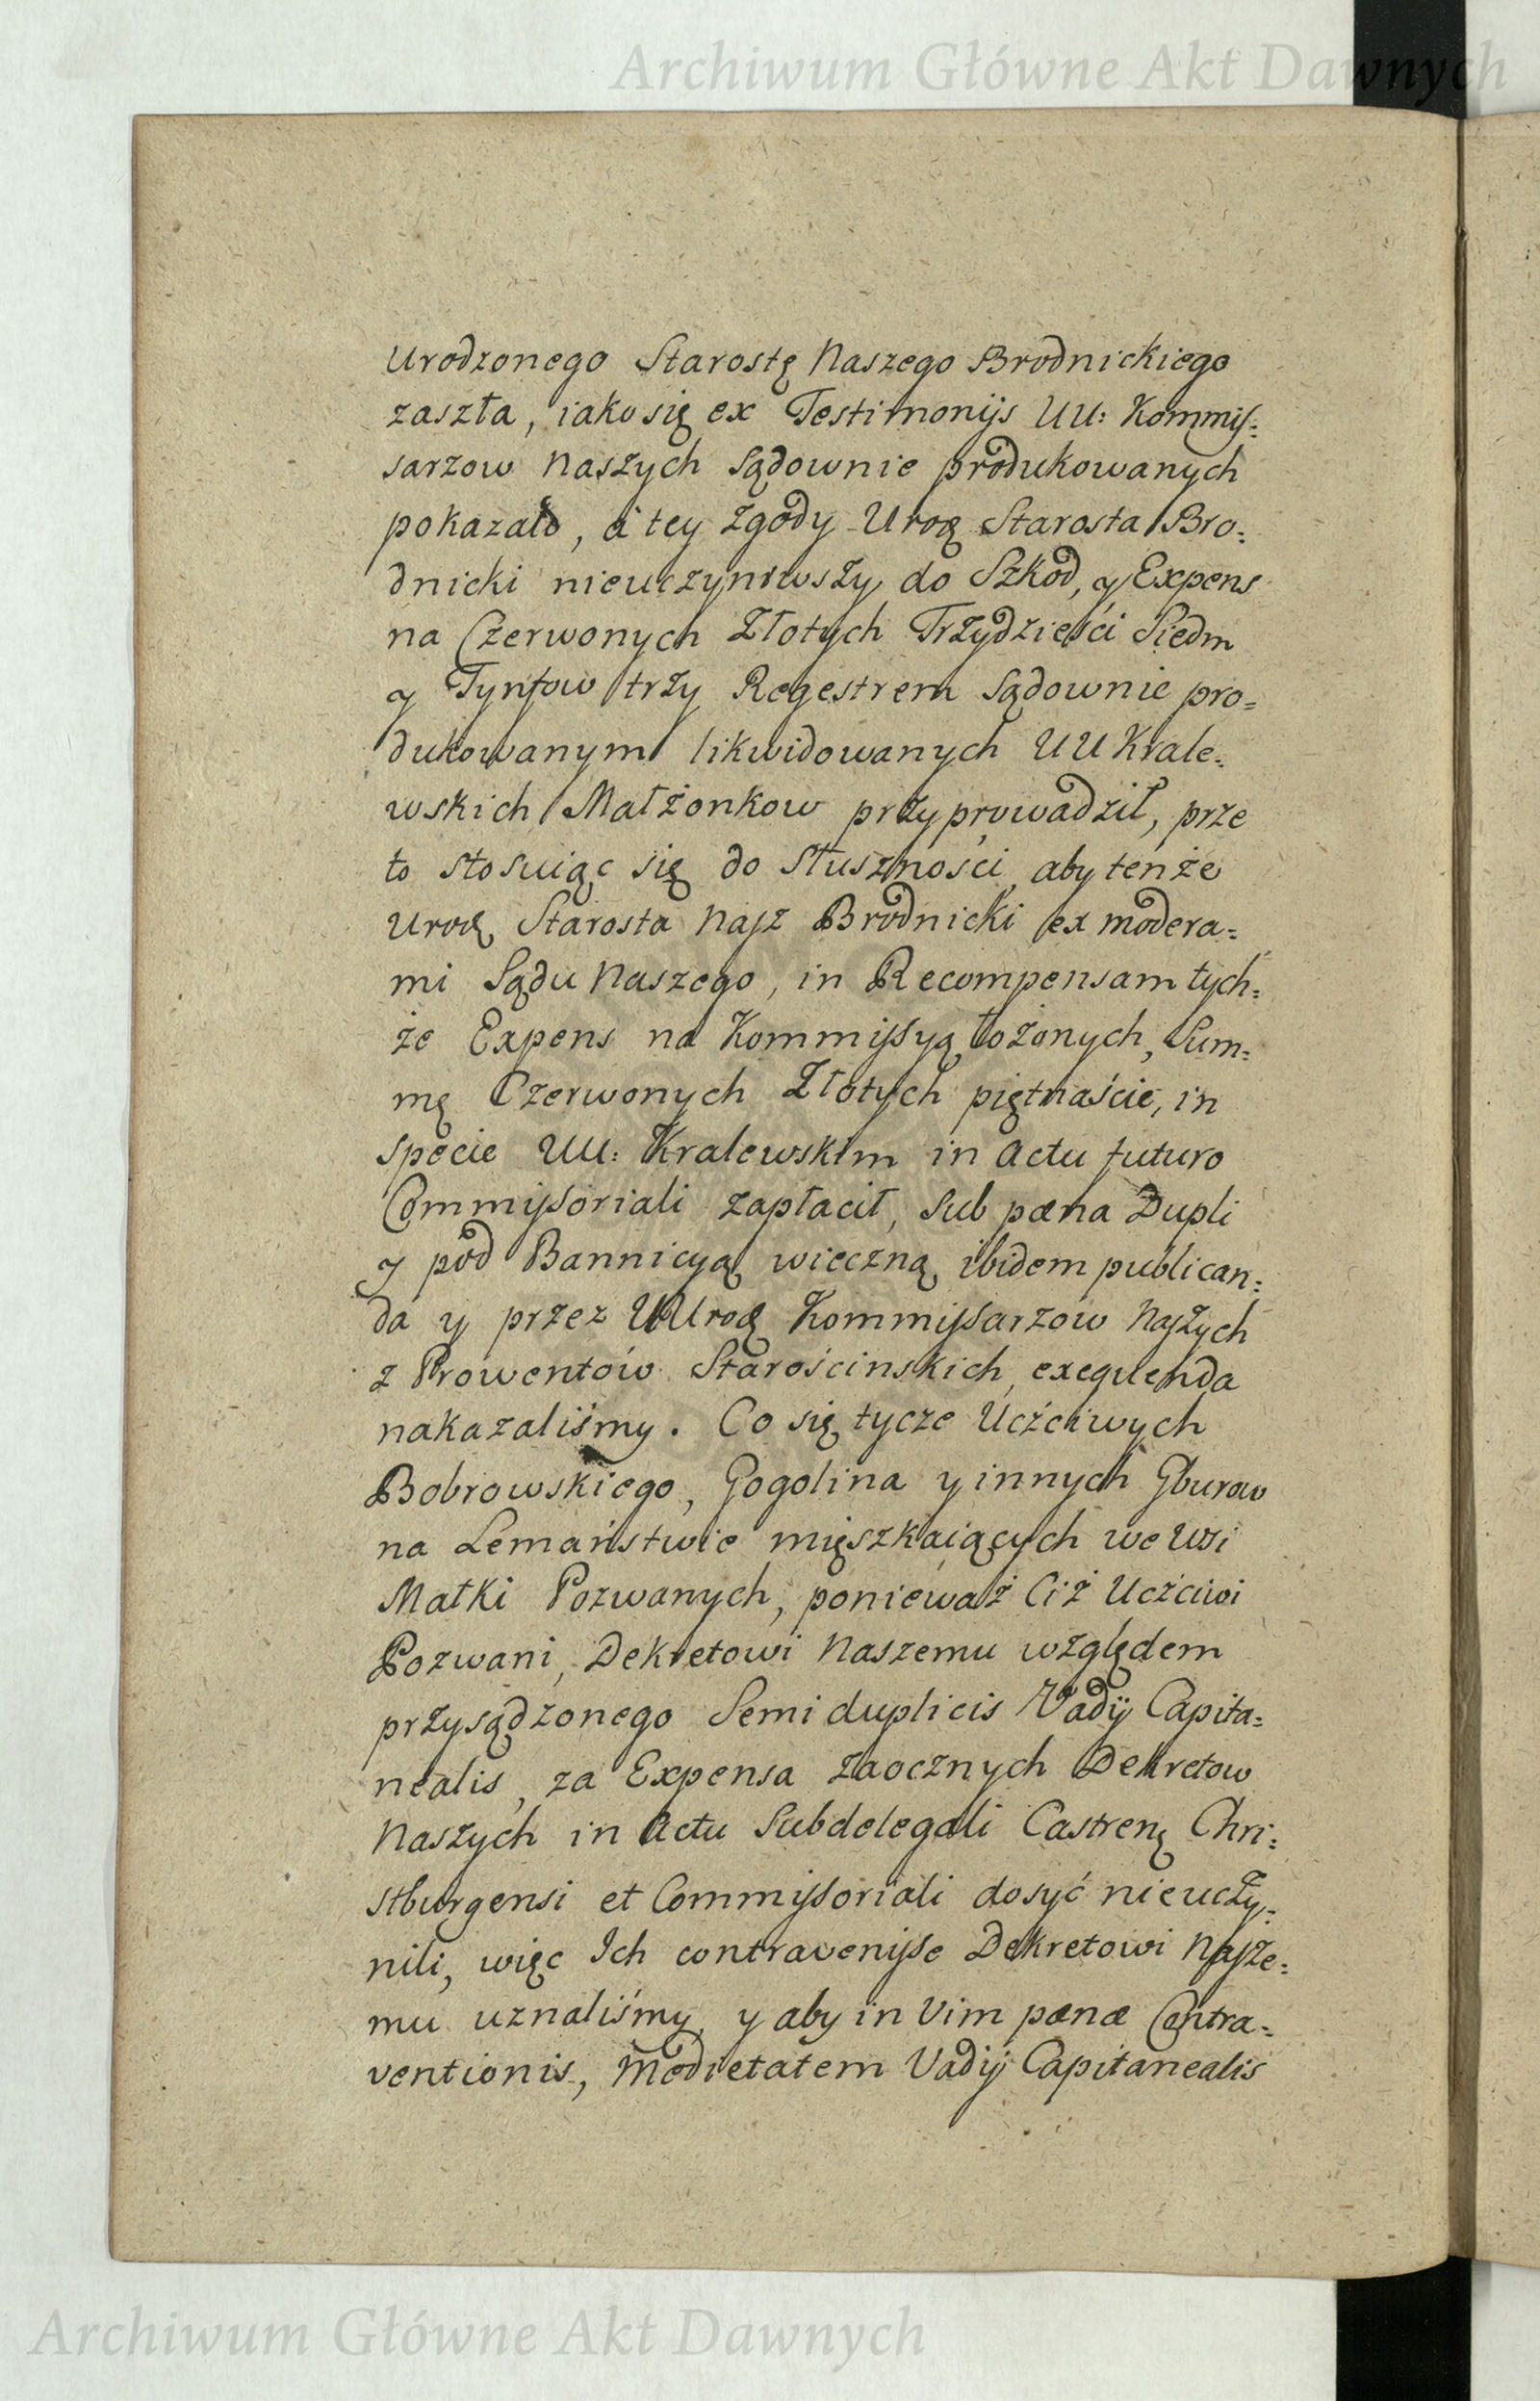 Archiwum Główne Akt Dawnych
Urodzonego Starostę Naszego Brodnickiego
zaszła, iako się ex Testimonijs UU: Kommis=
sarzow Naszych Sądownie produkowanych
pokazało, a tey Zgody Urod Starosta Bro=
dnicki nieuczyniwszy do Szkod, y Expens
na Czerwonych Złotych Trzydzieści Siedm
y Tynfow trzy Regestrem Sądownie pro=
dukowanym likwidowanych UU Krale=
wskich Małżonkow przyprowadził, prze
to stosuiąc się do Słuszności, aby tenże
Urod Starosta Nasz Brodnicki ex modera=
mi Sądu Naszego, in Recompensam tych=
że Expens na Kommissyą łożonych, Sum=
mę Czerwonych Złotych piętnaście, in
specie UU: Kralewskim in Actu futuro
Commissoriali zapłacił, Sub pæna Dupli
y pod Bannicyą wieczną ibidem publican=
da y przez UUrod Kommissarzow Naszych
z Prowentów Starościnskich, exequenda
nakazaliśmy. Co się tycze Uczciwych
Bobrowskiego, Gogolina y innych Gburow
na Lemaństwie mięszkaiących we Wsi
Małki Pozwanych, ponieważ Ciż Uczciwi
Pozwani, Dekretowi Naszemu względem
przysądzonego Semiduplicis Vadij Capita=
nealis, za Expensa Zaocznych Dekretow
Naszych in Actu Subdelegali Castren Chri=
stburgensi et Commissoriali dosyć nieuczy=
nili, więc Ich contravenisse Dekretowi Nasze=
mu uznaliśmy, y aby in Vim pænæ Contra=
ventionis, Medietatem Vadij Capitanealis
Archiwum Główne Akt Dawnych